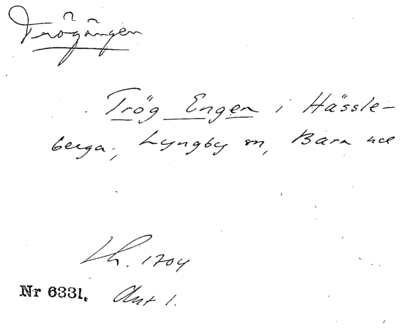 Trögången
Trög Engen i Hässle-
berga, Lyngby sn, Bara hd
Lh. 1704
Nr 6331. Akt 1.